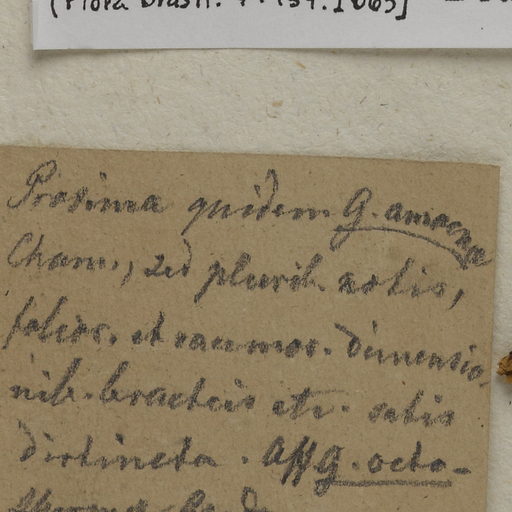 (Flora Brasil. 7: 154. 1865]
Proxima quidem G. amoena
Cham., sed plurib. notis,
folior. et racemor. dimensio-
nib. bracteis etc. satis
distincta. Aff G. octo-